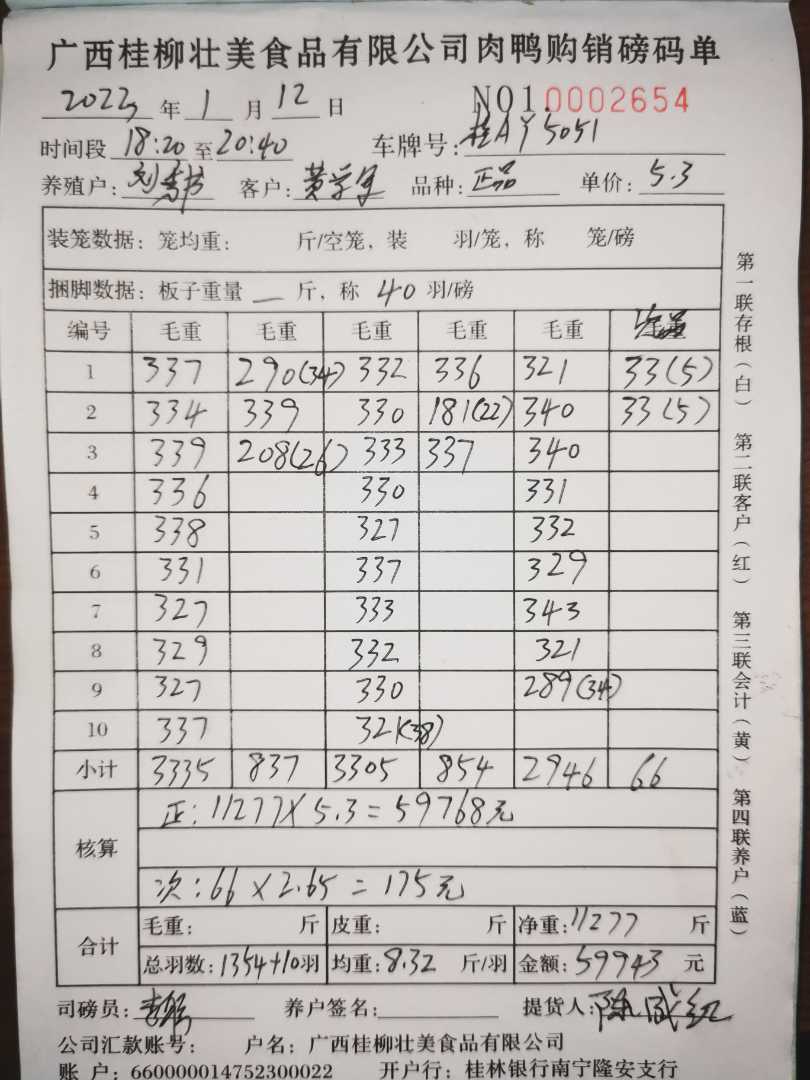 广西桂柳壮美食品有限公司肉鸭购销磅码单
2023年1月12日 NO1.0002654
时间段 18:20 至 20:40 车牌号: 桂A 5051
养殖户: 刘 客户: 黄 品种: 正品 单价: 5.3
装笼数据: 笼均重: 斤/空笼, 装 羽/笼, 称 笼/磅
捆脚数据: 板子重量 — 斤, 称 40 羽/磅
编号 毛重 毛重 毛重 毛重 毛重
1 337 290(34) 332 336 321 33(5)
2 334 339 330 181(22) 340 33(5)
3 339 208(26) 333 337 340
4 336 330 331
5 338 327 332
6 331 337 329
7 327 333 343
8 329 332 321
9 327 330 289(34)
10 337 321(38)
小计 3335 837 3305 854 2946 66
核算 正: 11277×5.3=59768元
次: 66×2.65=175元
合计 毛重: 斤 皮重: 斤 净重: 11277 斤
总羽数: 1354+10羽 均重: 8.32 斤/羽 金额: 59943 元
司磅员: 养户签名: 提货人: 陈成红
公司汇款账号: 户名: 广西桂柳壮美食品有限公司
账户: 660000014752300022 开户行: 桂林银行南宁隆安支行
第一联存根(白) 第二联客户(红) 第三联会计(黄) 第四联养户(蓝)